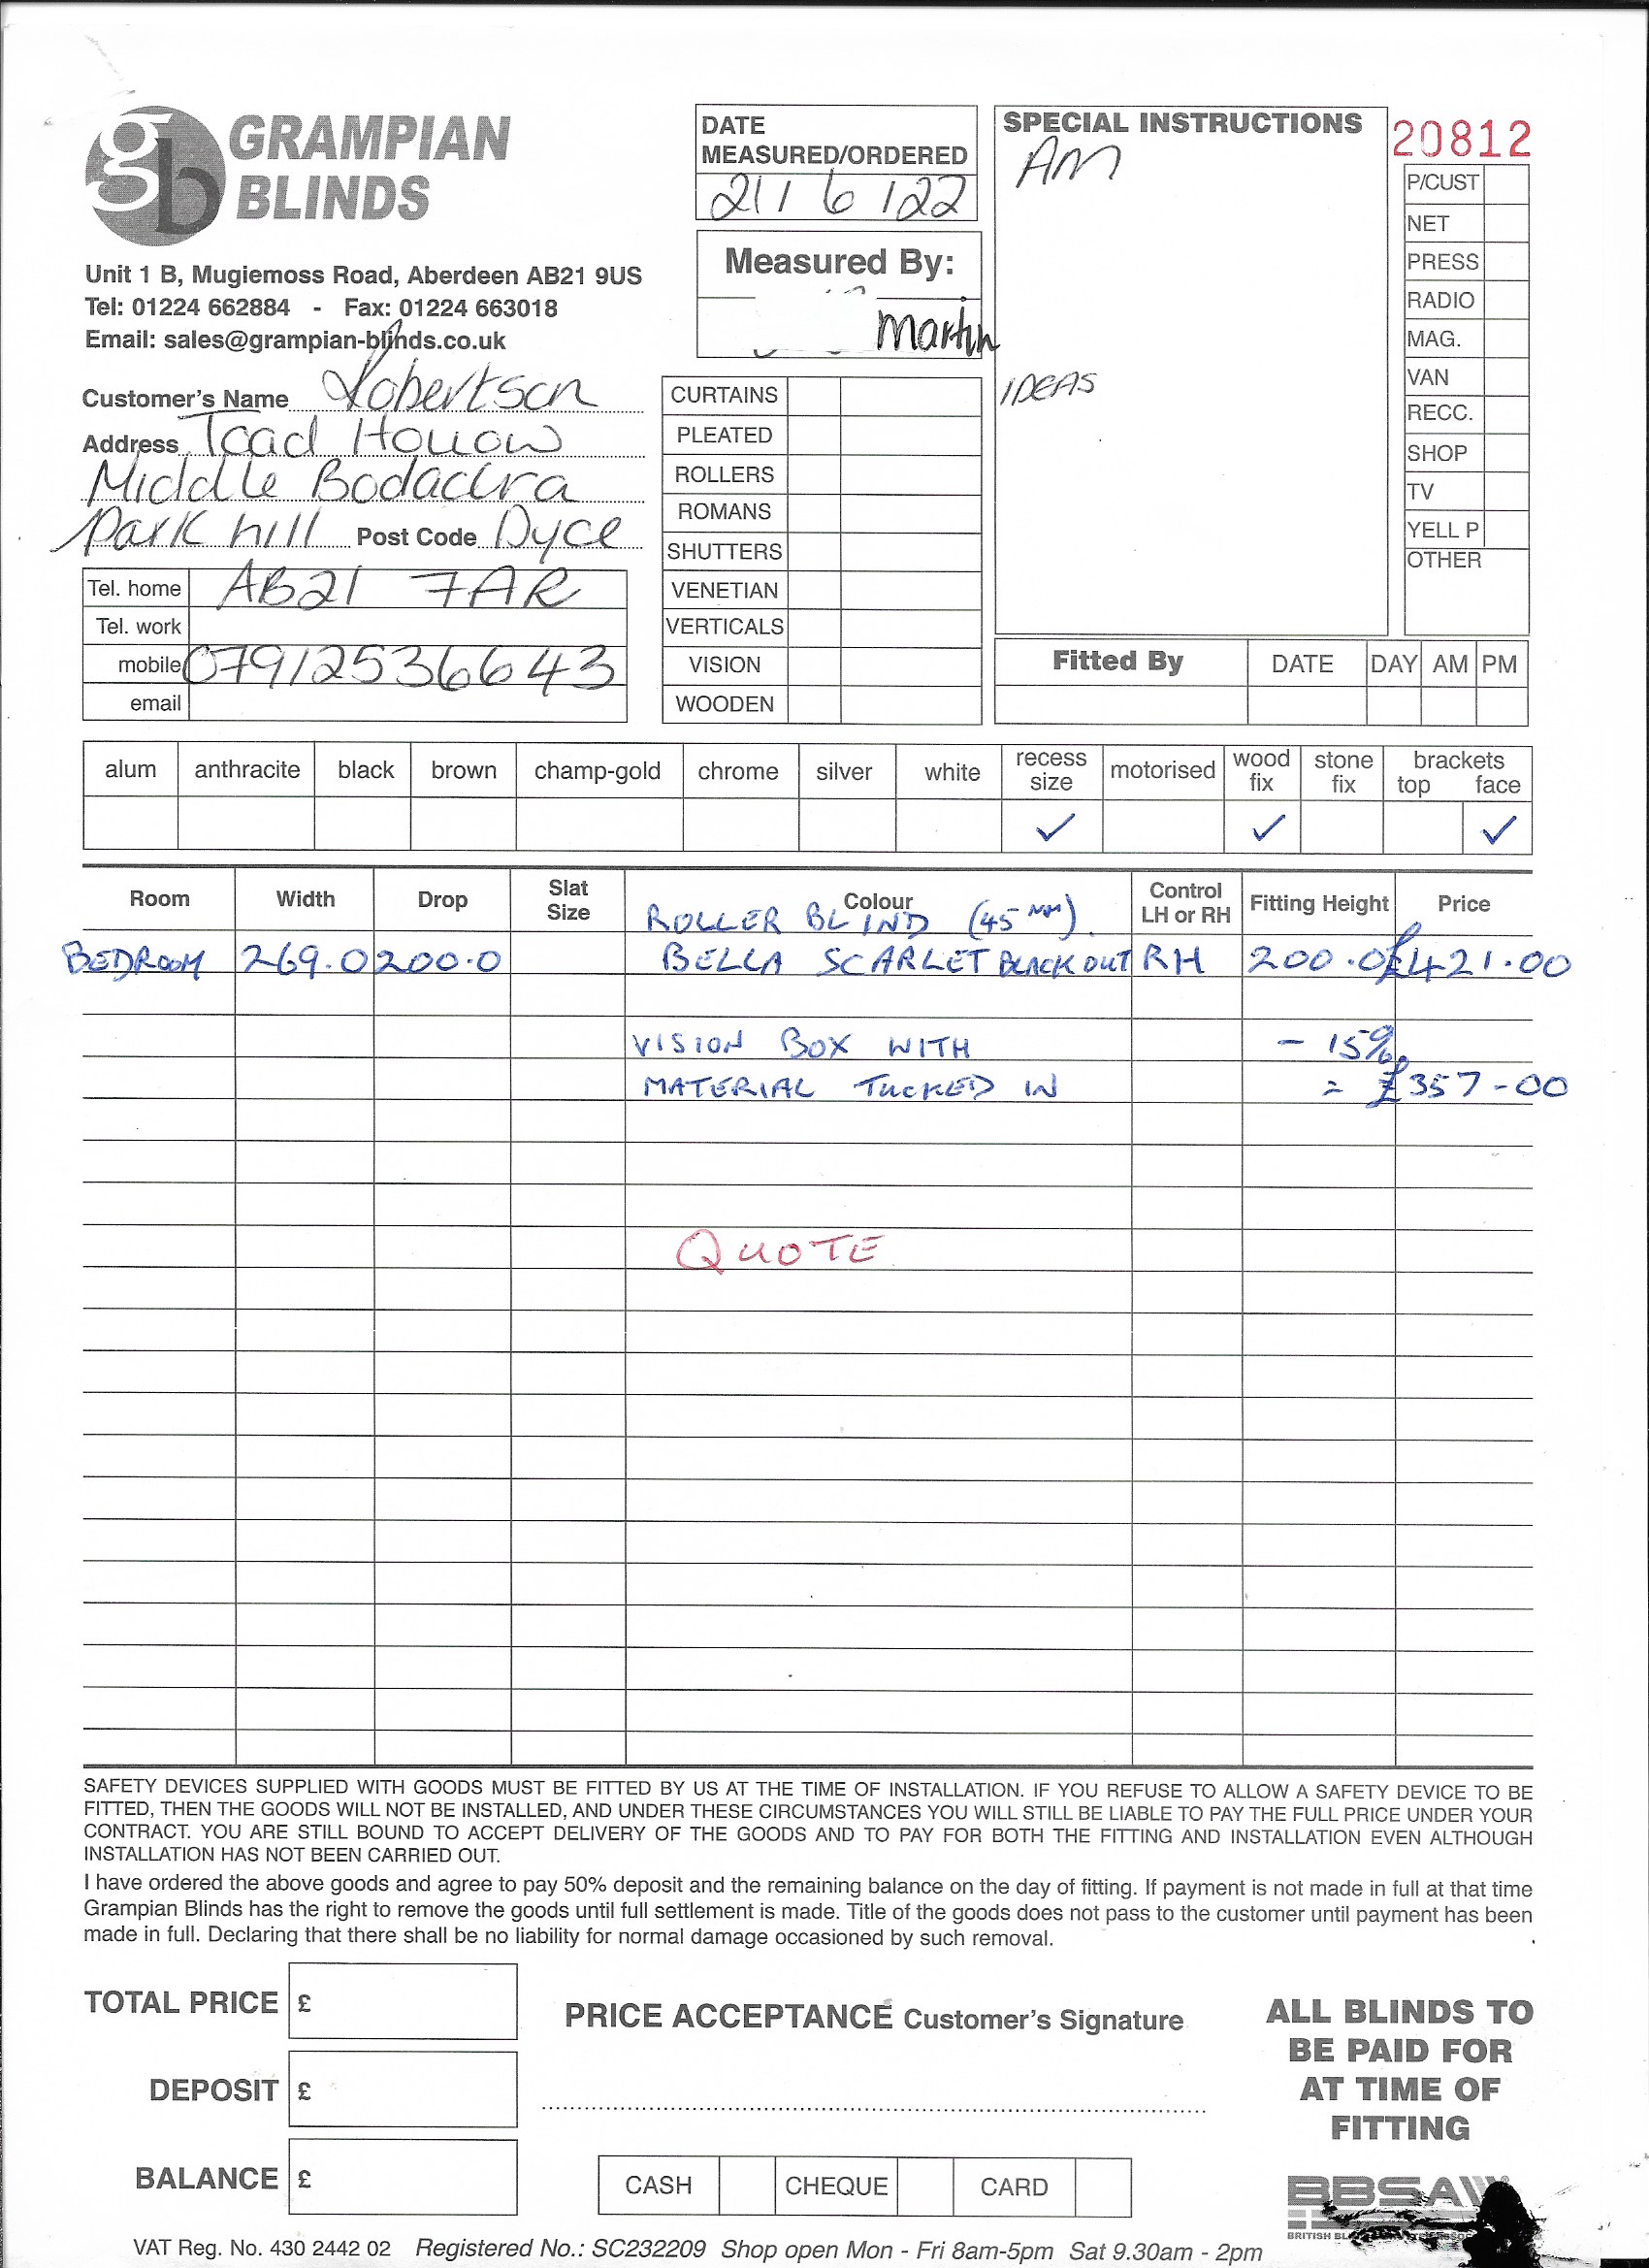 gb GRAMPIAN
BLINDS
Unit 1 B, Mugiemoss Road, Aberdeen AB21 9US
Tel: 01224 662884 - Fax: 01224 663018
Email: sales@grampian-blinds.co.uk
Customer's Name Robertson
Address Toad Hollow
Middle Bodachra
Parkhill Post Code Dyce
Tel. home AB21 7AR
Tel. work
mobile 07912536643
email
DATE
MEASURED/ORDERED
21/6/22
Measured By:
Martin
CURTAINS
PLEATED
ROLLERS
ROMANS
SHUTTERS
VENETIAN
VERTICALS
VISION
WOODEN
SPECIAL INSTRUCTIONS
AM
IDEAS
20812
P/CUST
NET
PRESS
RADIO
MAG.
VAN
RECC.
SHOP
TV
YELL P
OTHER
Fitted By DATE DAY AM PM
alum anthracite black brown champ-gold chrome silver white recess size motorised wood fix stone fix brackets top face
✓ ✓ ✓
Room Width Drop Slat Size Colour Control LH or RH Fitting Height Price
ROLLER BLIND (45mm).
BEDROOM 269.0 200.0 BELLA SCARLET BLACKOUT RH 200.0 £421.00
VISION BOX WITH - 15%
MATERIAL TUCKED IN = £357-00
QUOTE
SAFETY DEVICES SUPPLIED WITH GOODS MUST BE FITTED BY US AT THE TIME OF INSTALLATION. IF YOU REFUSE TO ALLOW A SAFETY DEVICE TO BE
FITTED, THEN THE GOODS WILL NOT BE INSTALLED, AND UNDER THESE CIRCUMSTANCES YOU WILL STILL BE LIABLE TO PAY THE FULL PRICE UNDER YOUR
CONTRACT. YOU ARE STILL BOUND TO ACCEPT DELIVERY OF THE GOODS AND TO PAY FOR BOTH THE FITTING AND INSTALLATION EVEN ALTHOUGH
INSTALLATION HAS NOT BEEN CARRIED OUT.
I have ordered the above goods and agree to pay 50% deposit and the remaining balance on the day of fitting. If payment is not made in full at that time
Grampian Blinds has the right to remove the goods until full settlement is made. Title of the goods does not pass to the customer until payment has been
made in full. Declaring that there shall be no liability for normal damage occasioned by such removal.
TOTAL PRICE £
DEPOSIT £
BALANCE £
PRICE ACCEPTANCE Customer's Signature
CASH CHEQUE CARD
ALL BLINDS TO
BE PAID FOR
AT TIME OF
FITTING
BBSA
BRITISH
VAT Reg. No. 430 2442 02 Registered No.: SC232209 Shop open Mon - Fri 8am-5pm Sat 9.30am - 2pm